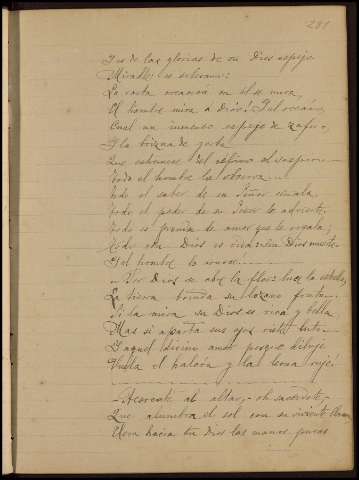 281
Que de las glorias de su Dios espejo
Miradle: es soberano:
La vasta creación en él se mira,
El hombre mira á Dios! Del oceáno
Cual un inmenso espejo de zafiro,
Y la brizna de yerba
Que estremece del céfiro el suspiro
Todo el hombre lo observa...
Todo el saber de su Señor señala
Todo el poder de su Señor lo advierte,
Todo es prenda de amor que le regala;
Todo es Dios es vida sin Dios muerte
Y el hombre lo conoce!
Por Dios se abre la flor: luce la estrella,
La tierra brinda su lozano fruto
Si la mira su Dios es rica y bella,
Mas si aparta sus ojos viste luto
Y aquel divino amor porque dibuje
Vuela el halcón y la leona ruje!
Acércate al altar, oh sacerdote,
Que alumbra el sol con su viviente llama
Alza hacia tu Dios las manos puras